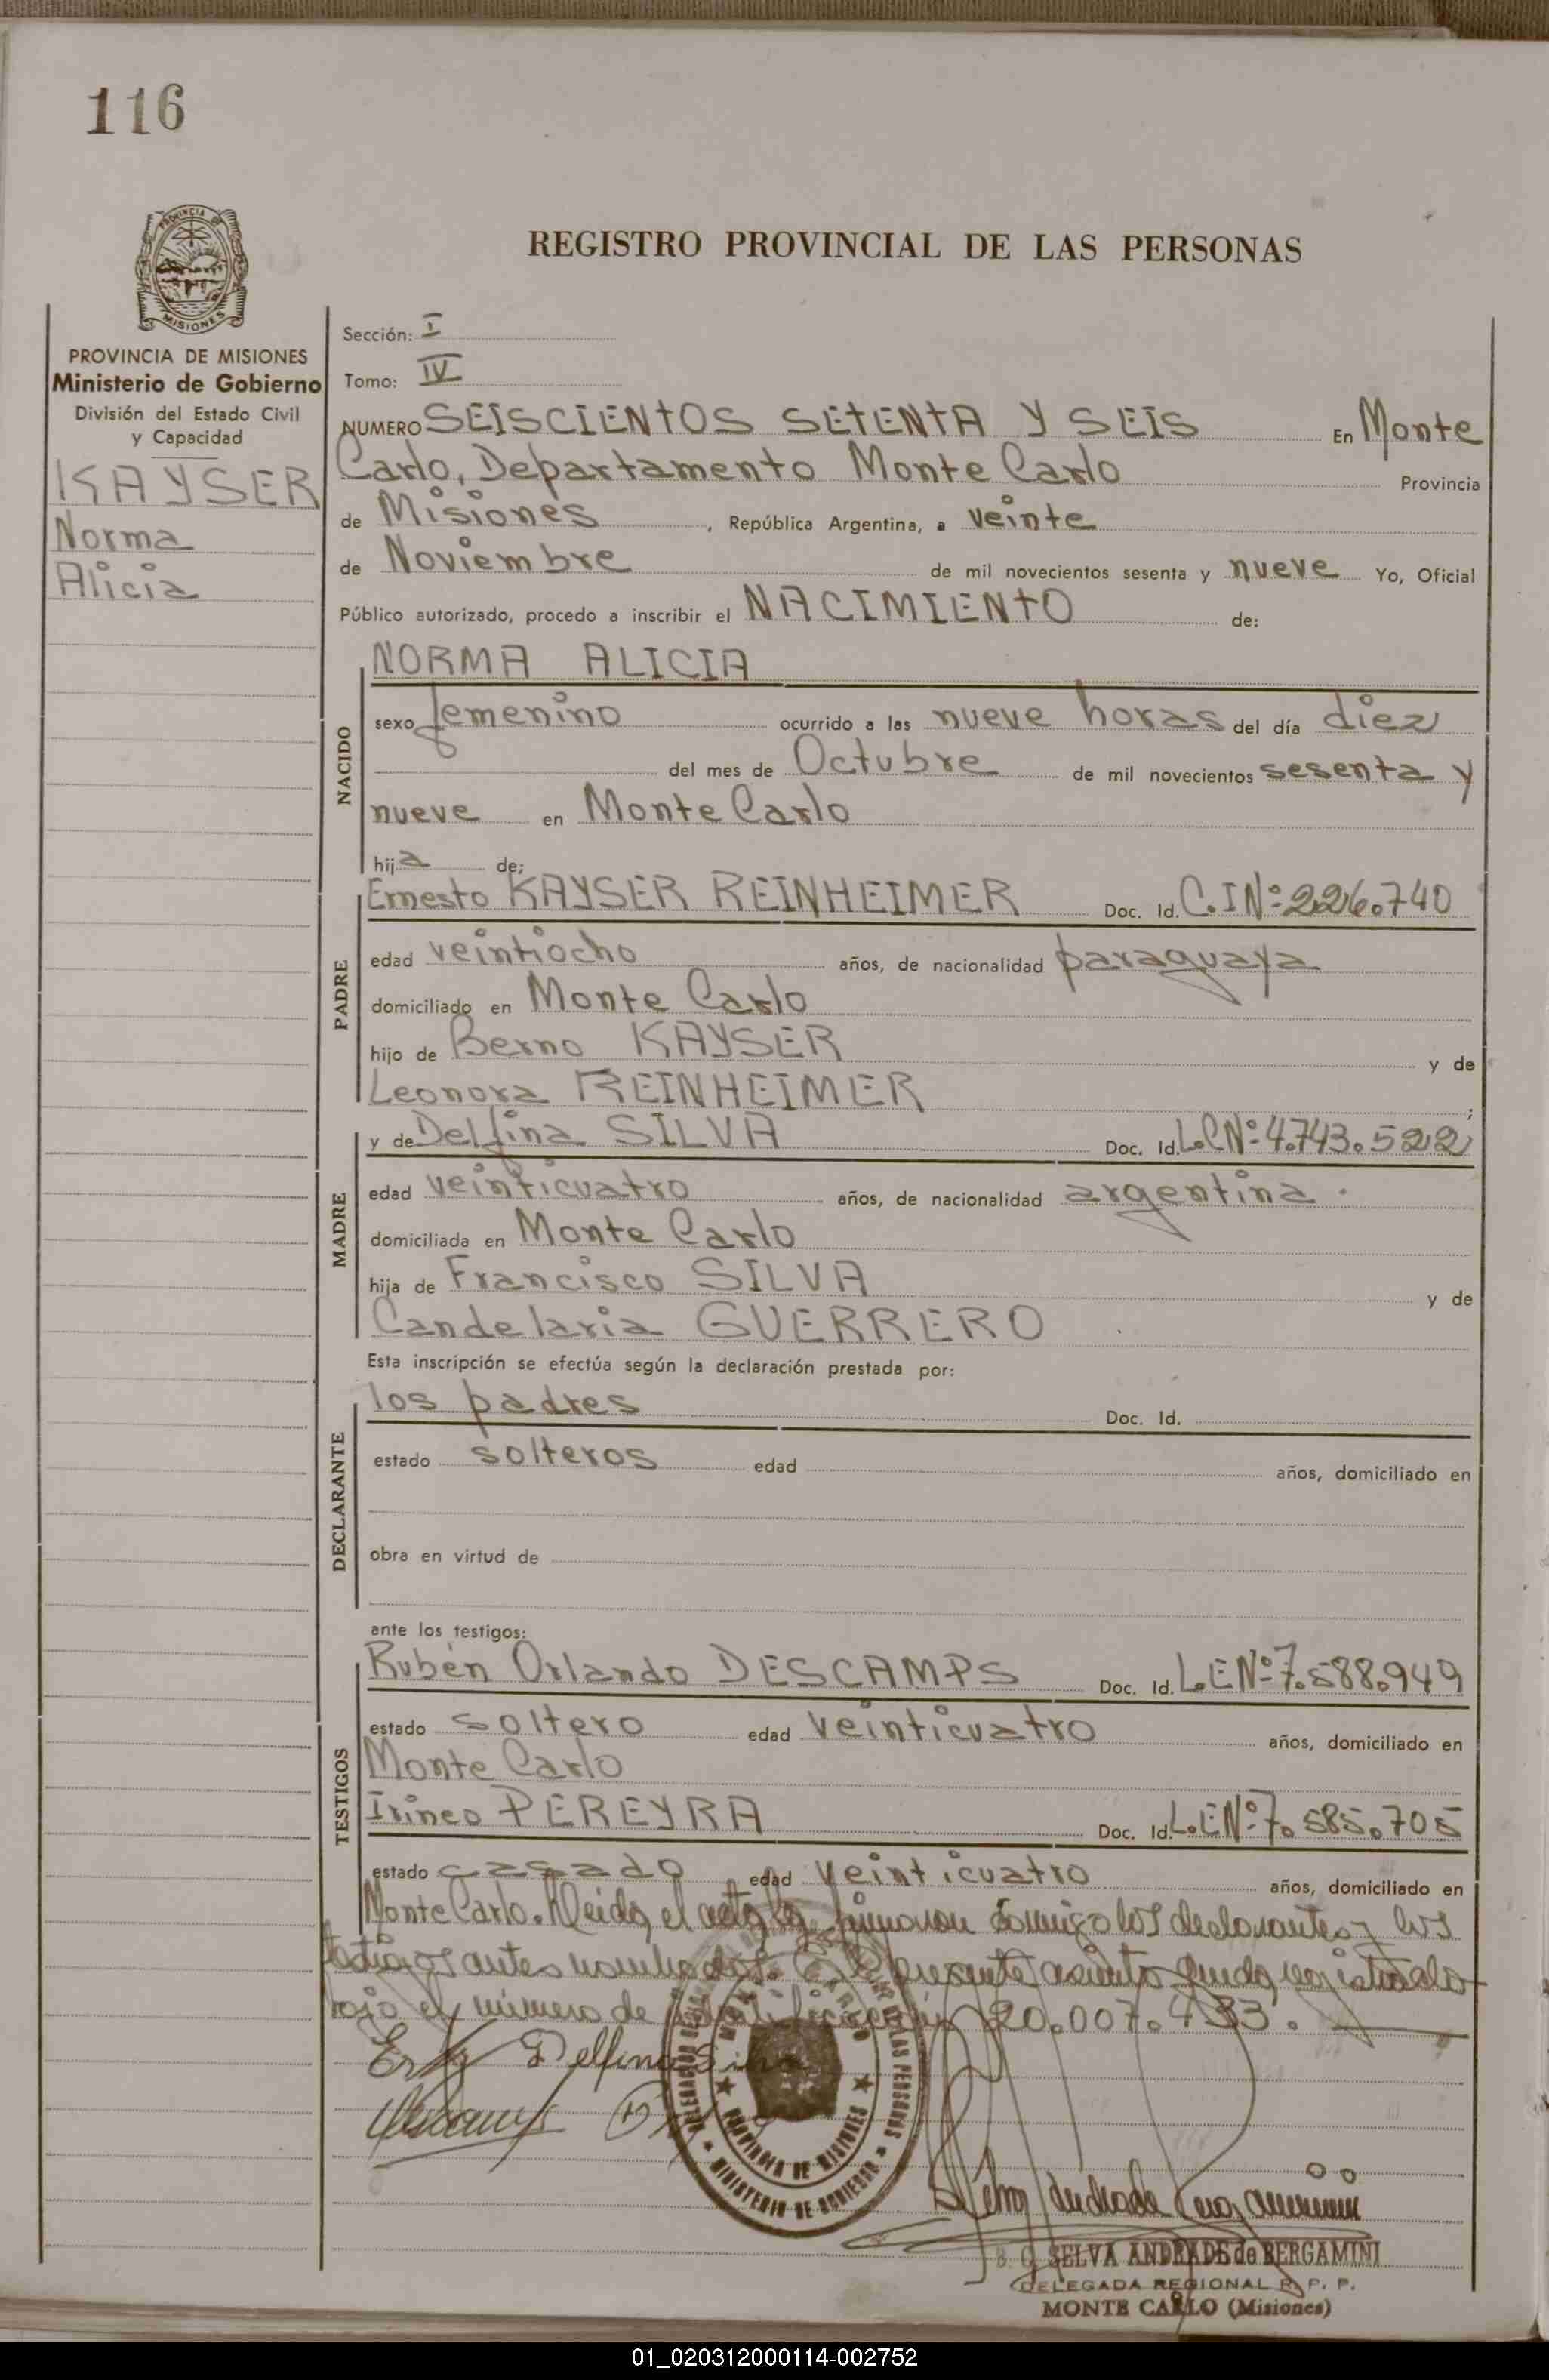 116
PROVINCIA DE
MISIONES
REGISTRO PROVINCIAL DE LAS PERSONAS
PROVINCIA DE MISIONES
Ministerio de Gobierno
División del Estado Civil
y Capacidad
KAYSER
Norma
Alicia
Sección: I
Tomo: IV
NUMERO SEISCIENTOS SETENTA Y SEIS En Monte
Carlo, Departamento Monte Carlo Provincia
de Misiones, República Argentina, a veinte
de Noviembre de mil novecientos sesenta y nueve Yo, Oficial
Público autorizado, procedo a inscribir el NACIMIENTO de:
NACIDO
NORMA ALICIA
sexo femenino ocurrido a las nueve horas del día diez
del mes de Octubre de mil novecientos sesenta y
nueve en Monte Carlo
hija de:
PADRE
Ernesto KAYSER REINHEIMER Doc. Id. C.I Nº 226.740
edad veintiocho años, de nacionalidad paraguaya
domiciliado en Monte Carlo
hijo de Berno KAYSER y de
Leonora REINHEIMER ;
MADRE
y de Delfina SILVA Doc. Id. L.C Nº 4.743.522
edad veinticuatro años, de nacionalidad argentina.
domiciliada en Monte Carlo
hija de Francisco SILVA y de
Candelaria GUERRERO
Esta inscripción se efectúa según la declaración prestada por:
DECLARANTE
los padres Doc. Id.
estado solteros edad años, domiciliado en
obra en virtud de
ante los testigos:
TESTIGOS
Rubén Orlando DESCAMPS Doc. Id. L.E Nº 7.588.949
estado soltero edad veinticuatro años, domiciliado en
Monte Carlo
Irineo PEREYRA Doc. Id. L.E Nº 7.585.705
estado casado edad veinticuatro años, domiciliado en
Monte Carlo. Leida el acta la firmaron conmigo los declarantes y los
testigos antes nombrados. El presente asiento queda registrado
bajo el número de identificación 20.007.433.
Delfina Silva
PROVINCIA DE MISIONES
MINISTERIO DE GOBIERNO
DE LAS PERSONAS
Selva Andrade Bergamini
B. G. SELVA ANDRADE de BERGAMINI
DELEGADA REGIONAL R. P. P.
MONTE CARLO (Misiones)
01_020312000114-002752